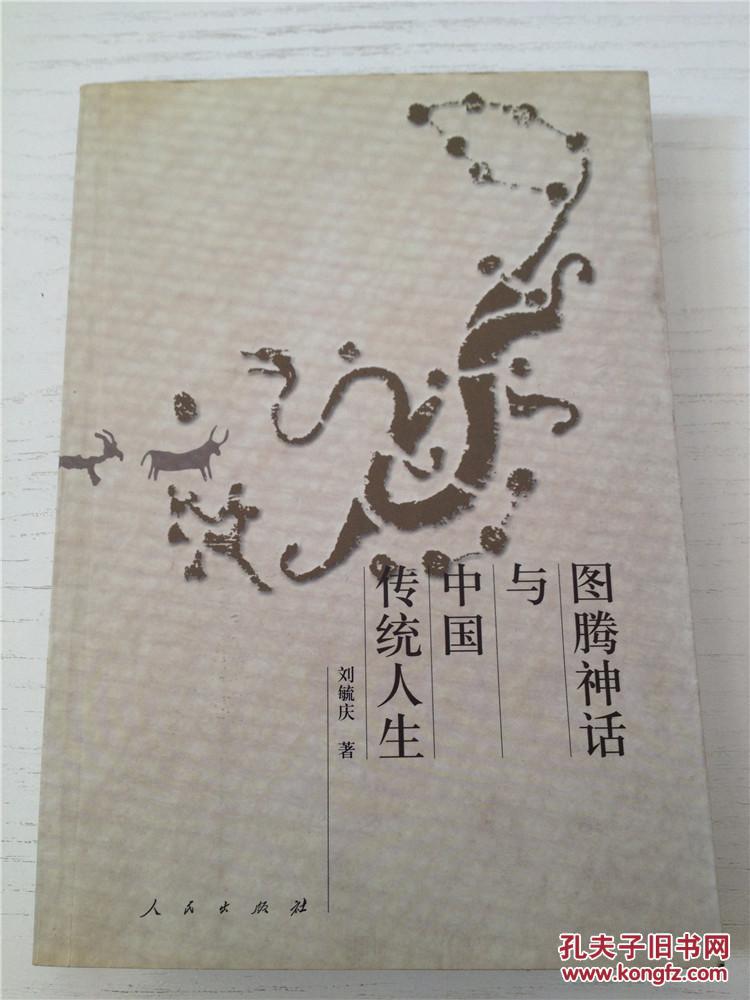 图腾神话
与
中国
传统人生
刘毓庆 著
人民出版社
孔夫子旧书网
www.kongfz.com